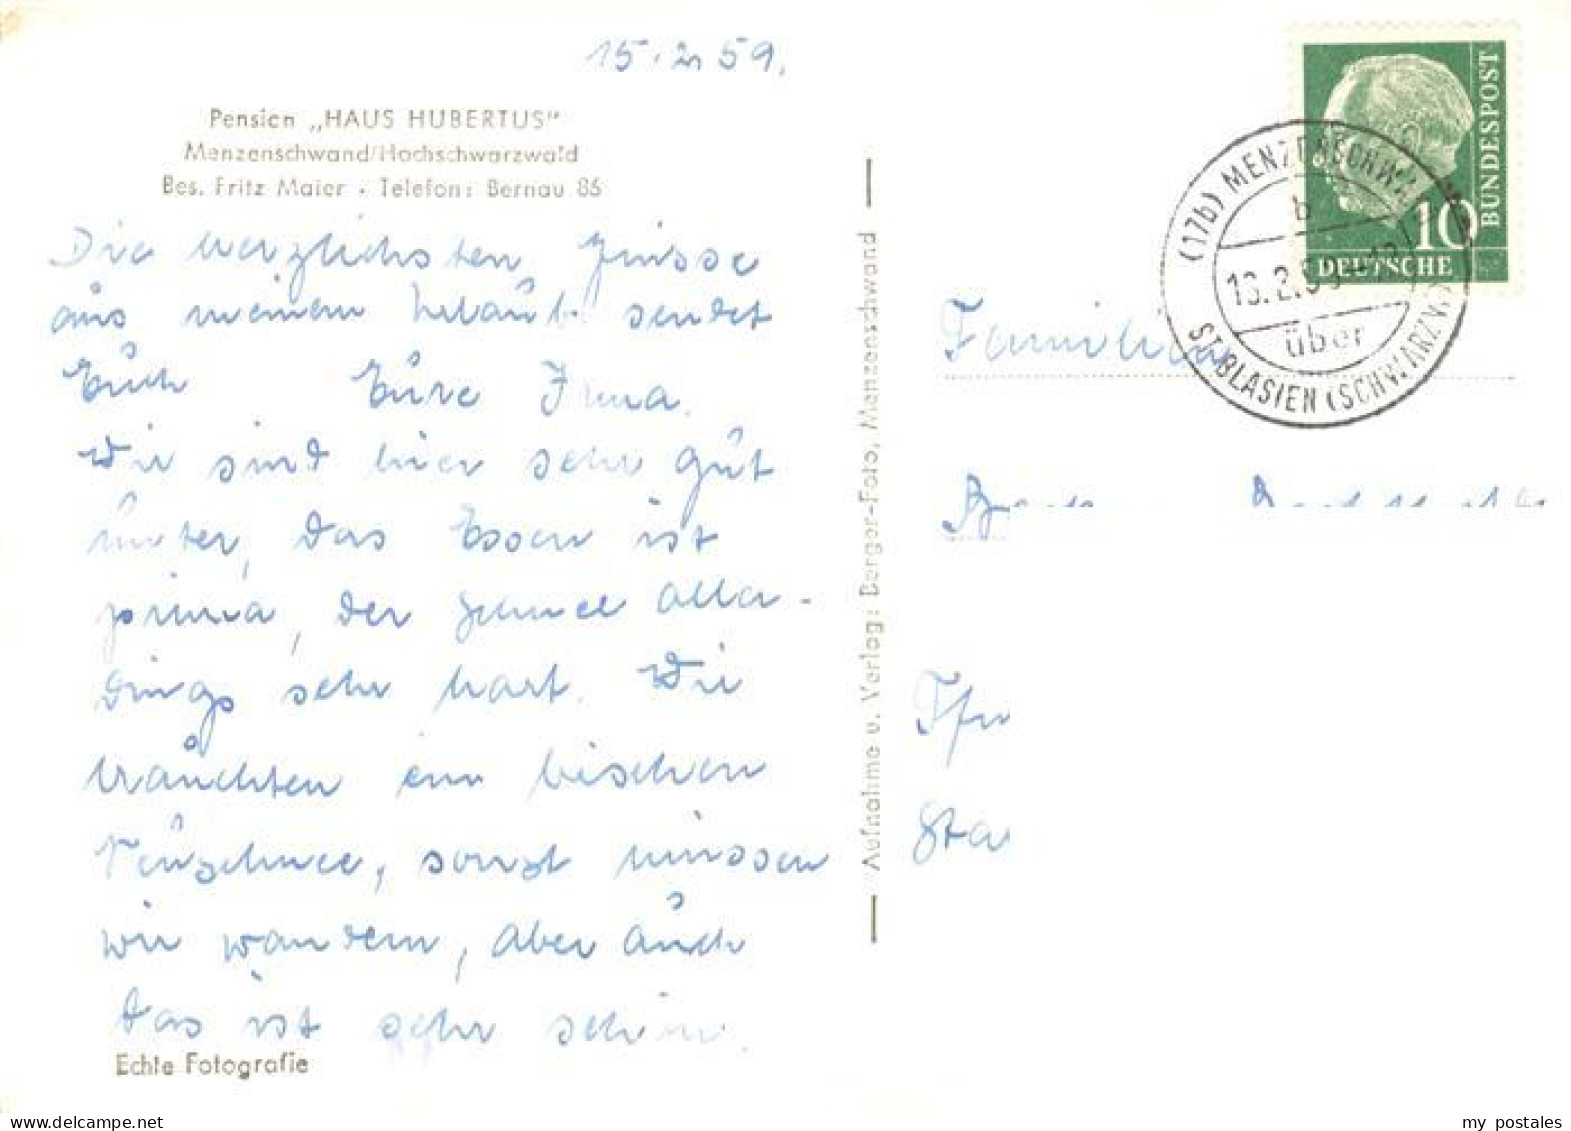 15.2.59.
Pension „HAUS HUBERTUS"
Menzenschwand/Hochschwarzwald
Bes. Fritz Maier . Telefon: Bernau 86
Die herzlichsten Grüsse
aus meinem Urlaub sendet
Euch Eure Irma.
Wir sind hier sehr gut
unter, das Essen ist
prima, der Schnee aller-
dings sehr hart. Wir
bräuchten ein bischen
Neuschnee, sonst müssen
wir wandern, aber auch
das ist sehr schön.
Echte Fotografie
Aufnahme u. Verlag: Berger-Foto, Menzenschwand
DEUTSCHE BUNDESPOST
10
(17b) MENZENSCHWAND
b
über
ST. BLASIEN (SCHWARZW.)
Familie
my postales